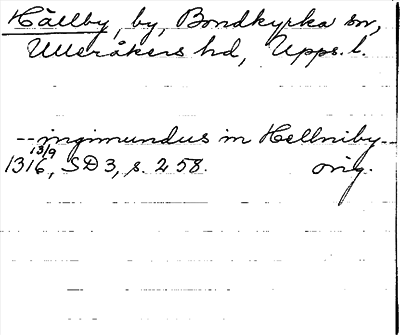 Hällby, by, Bondkyrka sn,
Ulleråkers hd, Upps. l.
-- ingimundus in Hellniby --
13/9
1316, SD 3, s. 258. orig.